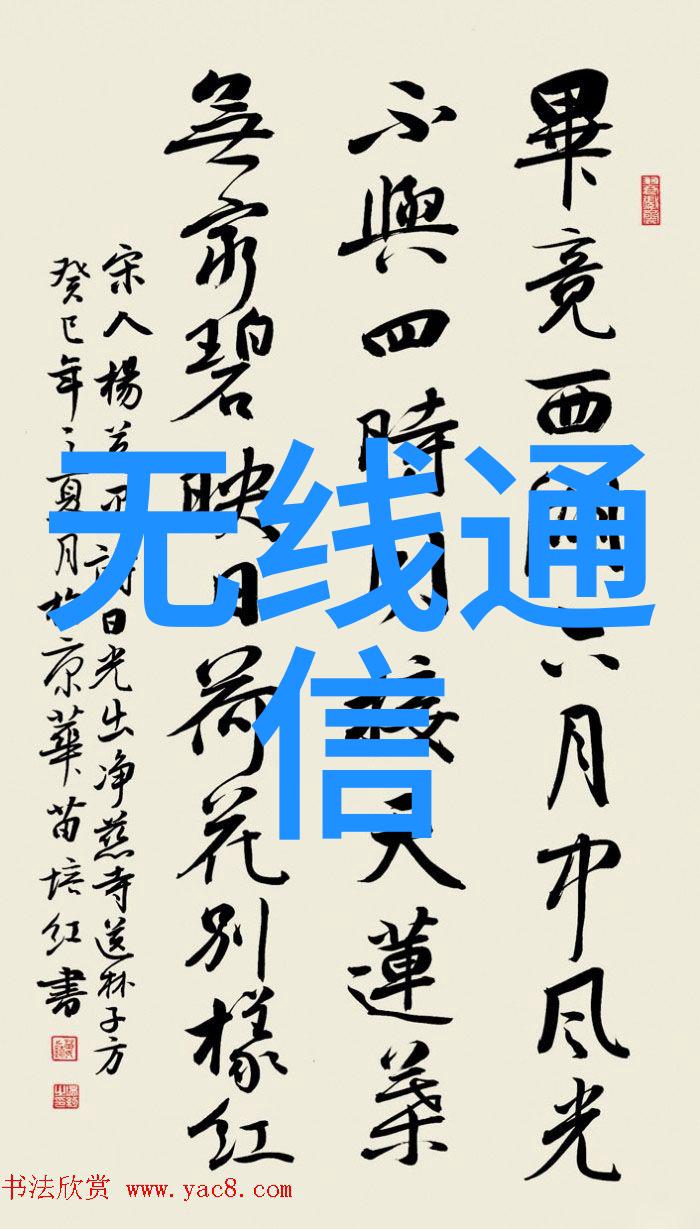 畢竟西湖六月中风光
不與四時同接天蓮葉
無窮碧映日荷花別樣紅
宋人楊萬里詩曉出净慈寺送林子方
癸巳年之夏月於京華苗培红書
无线通
信
书法欣赏 www.yac8.com